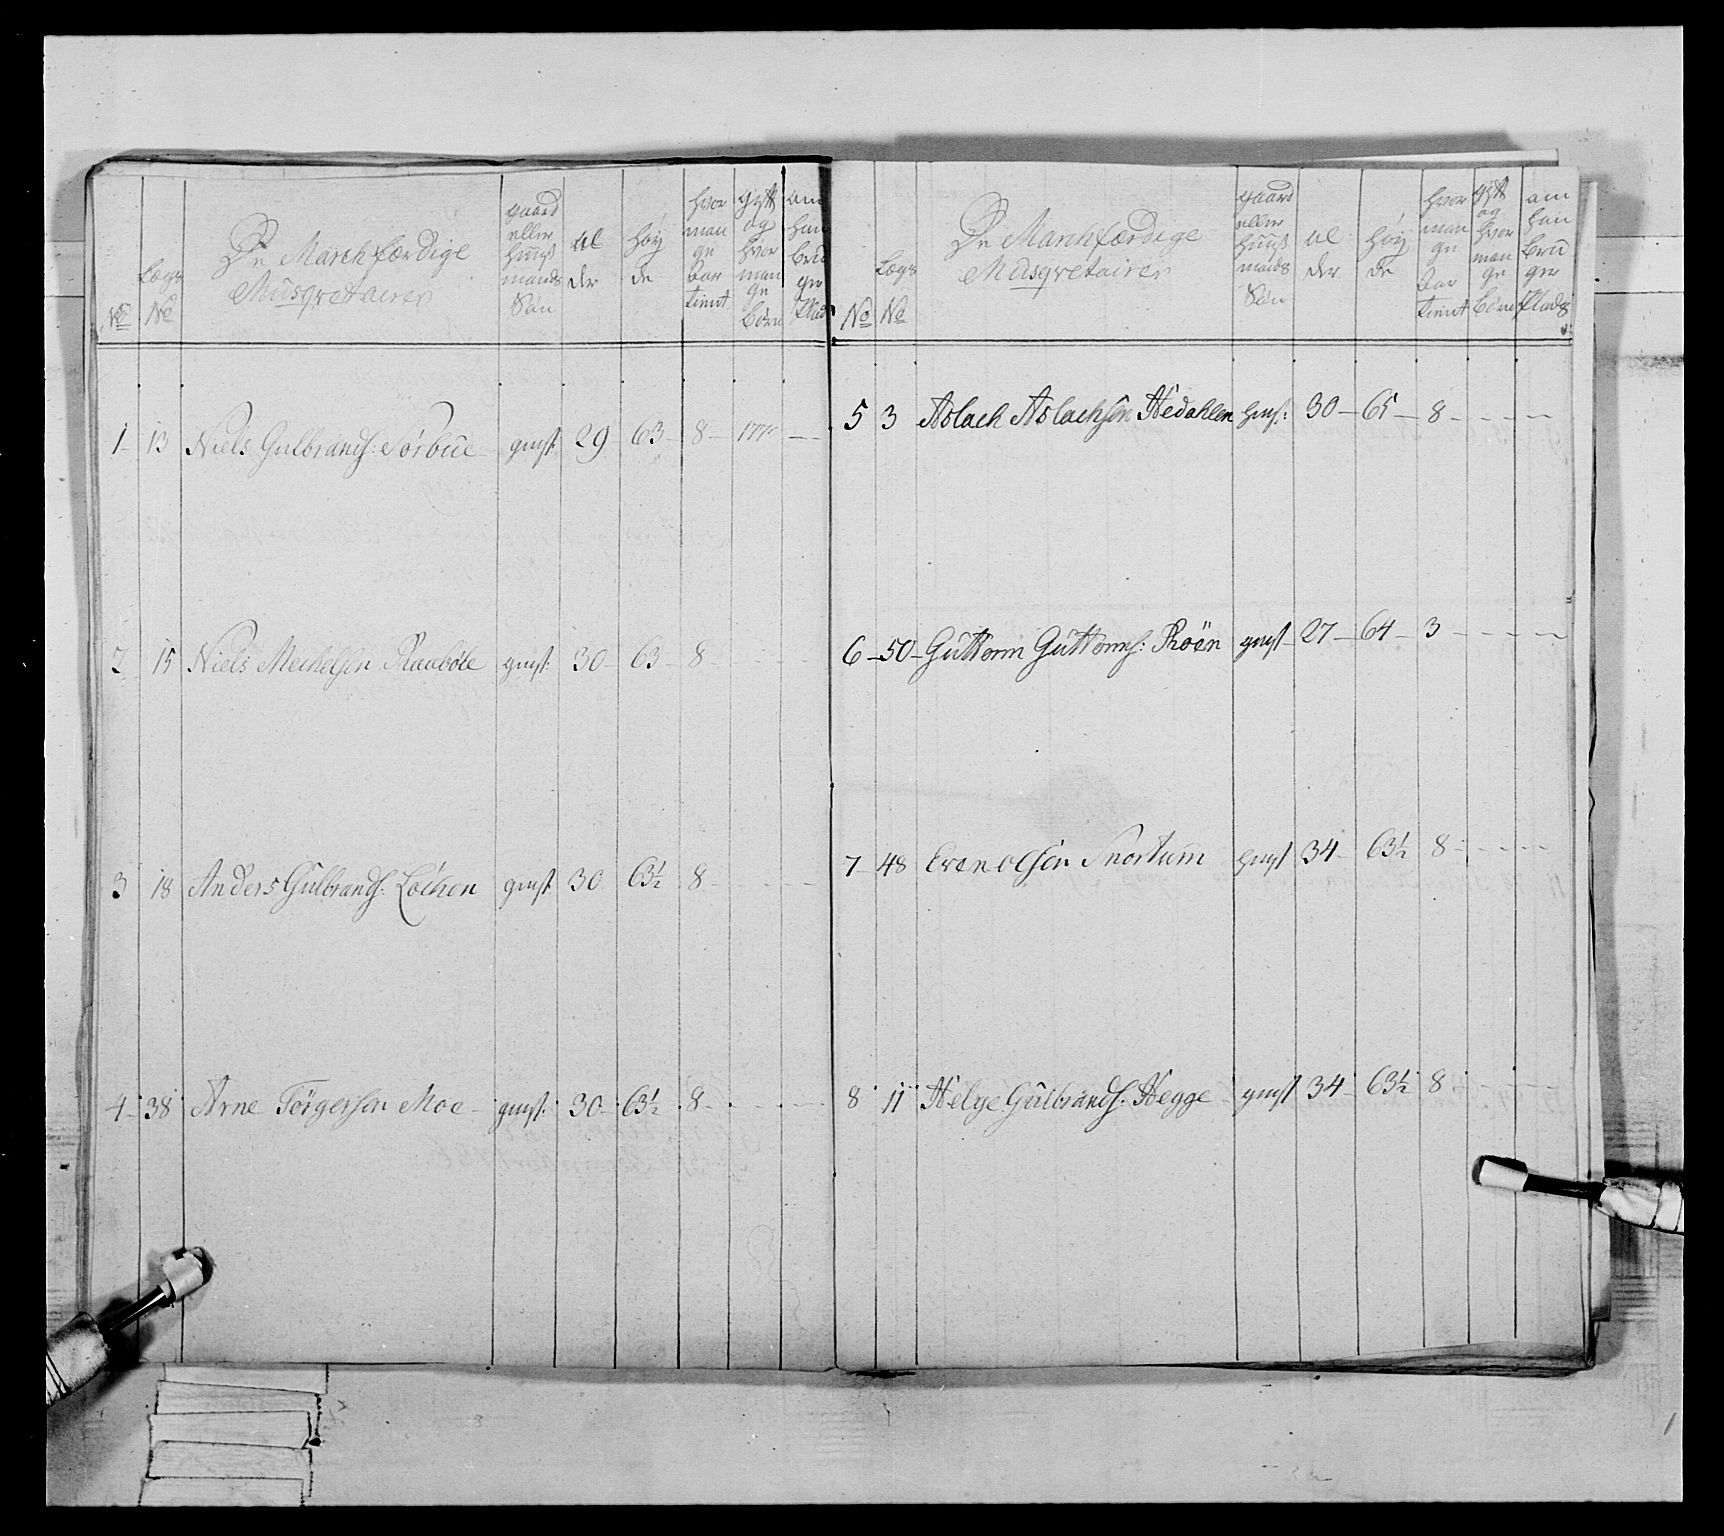 No
Lægs No
De Marchfærdige Musqvetairer
gaard eller huus mands Søn
al der
høy de
hvor man ge aar tient
gift og hvor man ge børn
om han bru ger Plads
1 13 Niels Gulbrands: Sørbue gmst 29 63 8
2 15 Niels Mechelsen Raabøle gmst: 30 63 8
3 18 Anders Gulbrands: Løchen gmst 30 63½ 8
4 38 Arne Tørgersen Moe gmst: 30 63½ 8
No
Lægs No
De Marchfærdige Musqvetairer
gaard eller huus mands Søn
al der
høy de
hvor man ge aar tient
gift og hvor man ge børn
om han bru ger Plads
5 3 Aslach Aslachsen Hedahlen hmst: 30 65 8
6 50 Guttorm Guttorms: Røen gmst 27 64 3
7 48 Even Olsen Snortum hmst 34 63½ 8
8 11 Helge Gulbrands: Hegge gmst 34 63½ 8